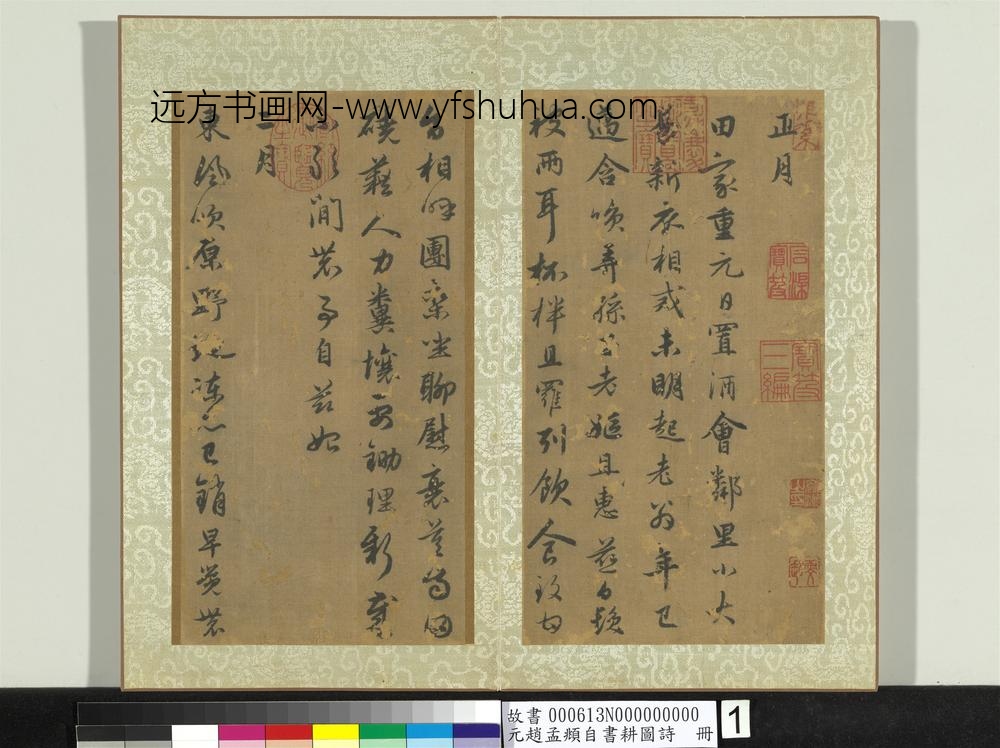 远方书画网-www.yfshuhua.com
正月
田家重元日置酒會鄰里小大
易新衣相戒未明起老翁年已
邁含笑弄孫子老嫗且惠慈白髮
被兩耳杯柈且羅列飲食致甘
旨相呼團欒坐聊慰衰莫齒田
磽藉人力糞壤要鋤理新歲
不敢閒農事自茲始
二月
東風吹原野地凍亦已銷早覺農
石渠寶笈
寶笈三編
故書 000613N000000000
元趙孟頫自書耕圖詩 冊
1